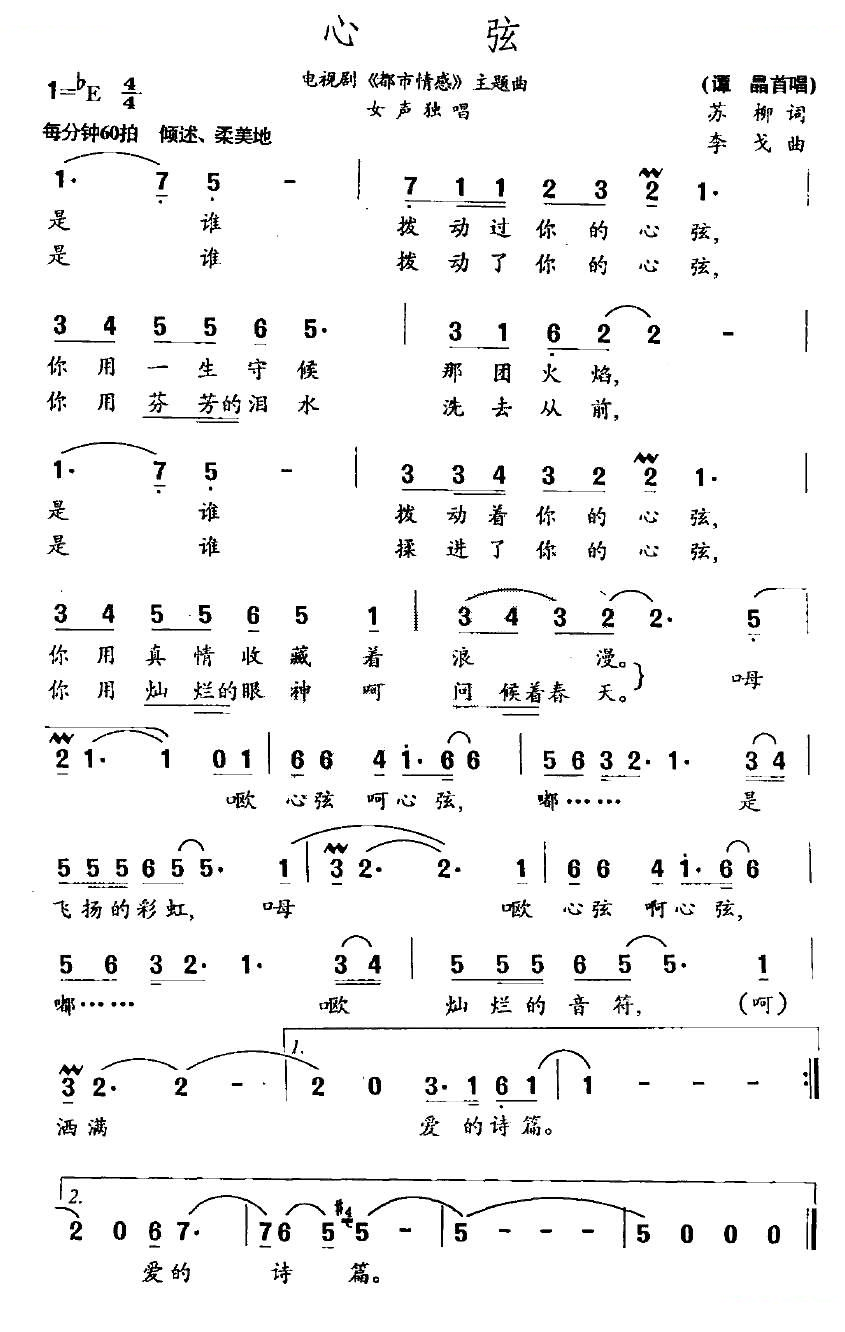 心 弦
电视剧《都市情感》主题曲
女声独唱
1=♭E 4/4
(谭 晶首唱)
苏 柳 词
李 戈 曲
每分钟60拍 倾述、柔美地
1· 7 5 - | 7 1 1 2 3 2 1· |
是 谁 拨 动 过 你 的 心 弦,
是 谁 拨 动 了 你 的 心 弦,
3 4 5 5 6 5· | 3 1 6 2 2 - |
你 用 一 生 守 候 那 团 火 焰,
你 用 芬 芳 的 泪 水 洗 去 从 前,
1· 7 5 - | 3 3 4 3 2 2 1· |
是 谁 拨 动 着 你 的 心 弦,
是 谁 揉 进 了 你 的 心 弦,
3 4 5 5 6 5 1 | 3 4 3 2 2· 5 |
你 用 真 情 收 藏 着 浪 漫。
你 用 灿 烂 的 眼 神 呵 问 候 着 春 天。 } 哞
2 1· 1 0 1 | 6 6 4 1· 6 6 | 5 6 3 2· 1· 3 4 |
呕 心 弦 呵 心 弦, 嘟…… 是
5 5 5 6 5 5· 1 | 3 2· 2· 1 | 6 6 4 1· 6 6 |
飞 扬 的 彩 虹, 哞 呕 心 弦 啊 心 弦,
5 6 3 2· 1· 3 4 | 5 5 5 6 5 5· 1 |
嘟…… 呕 灿 烂 的 音 符, (呵)
1.
3 2· 2 - | 2 0 3· 1 6 1 | 1 - - - :|
洒 满 爱 的 诗 篇。
2.
2 0 6 7· | 7 6 5 #4 5 - - | 5 - - - | 5 0 0 0 |
爱 的 诗 篇。